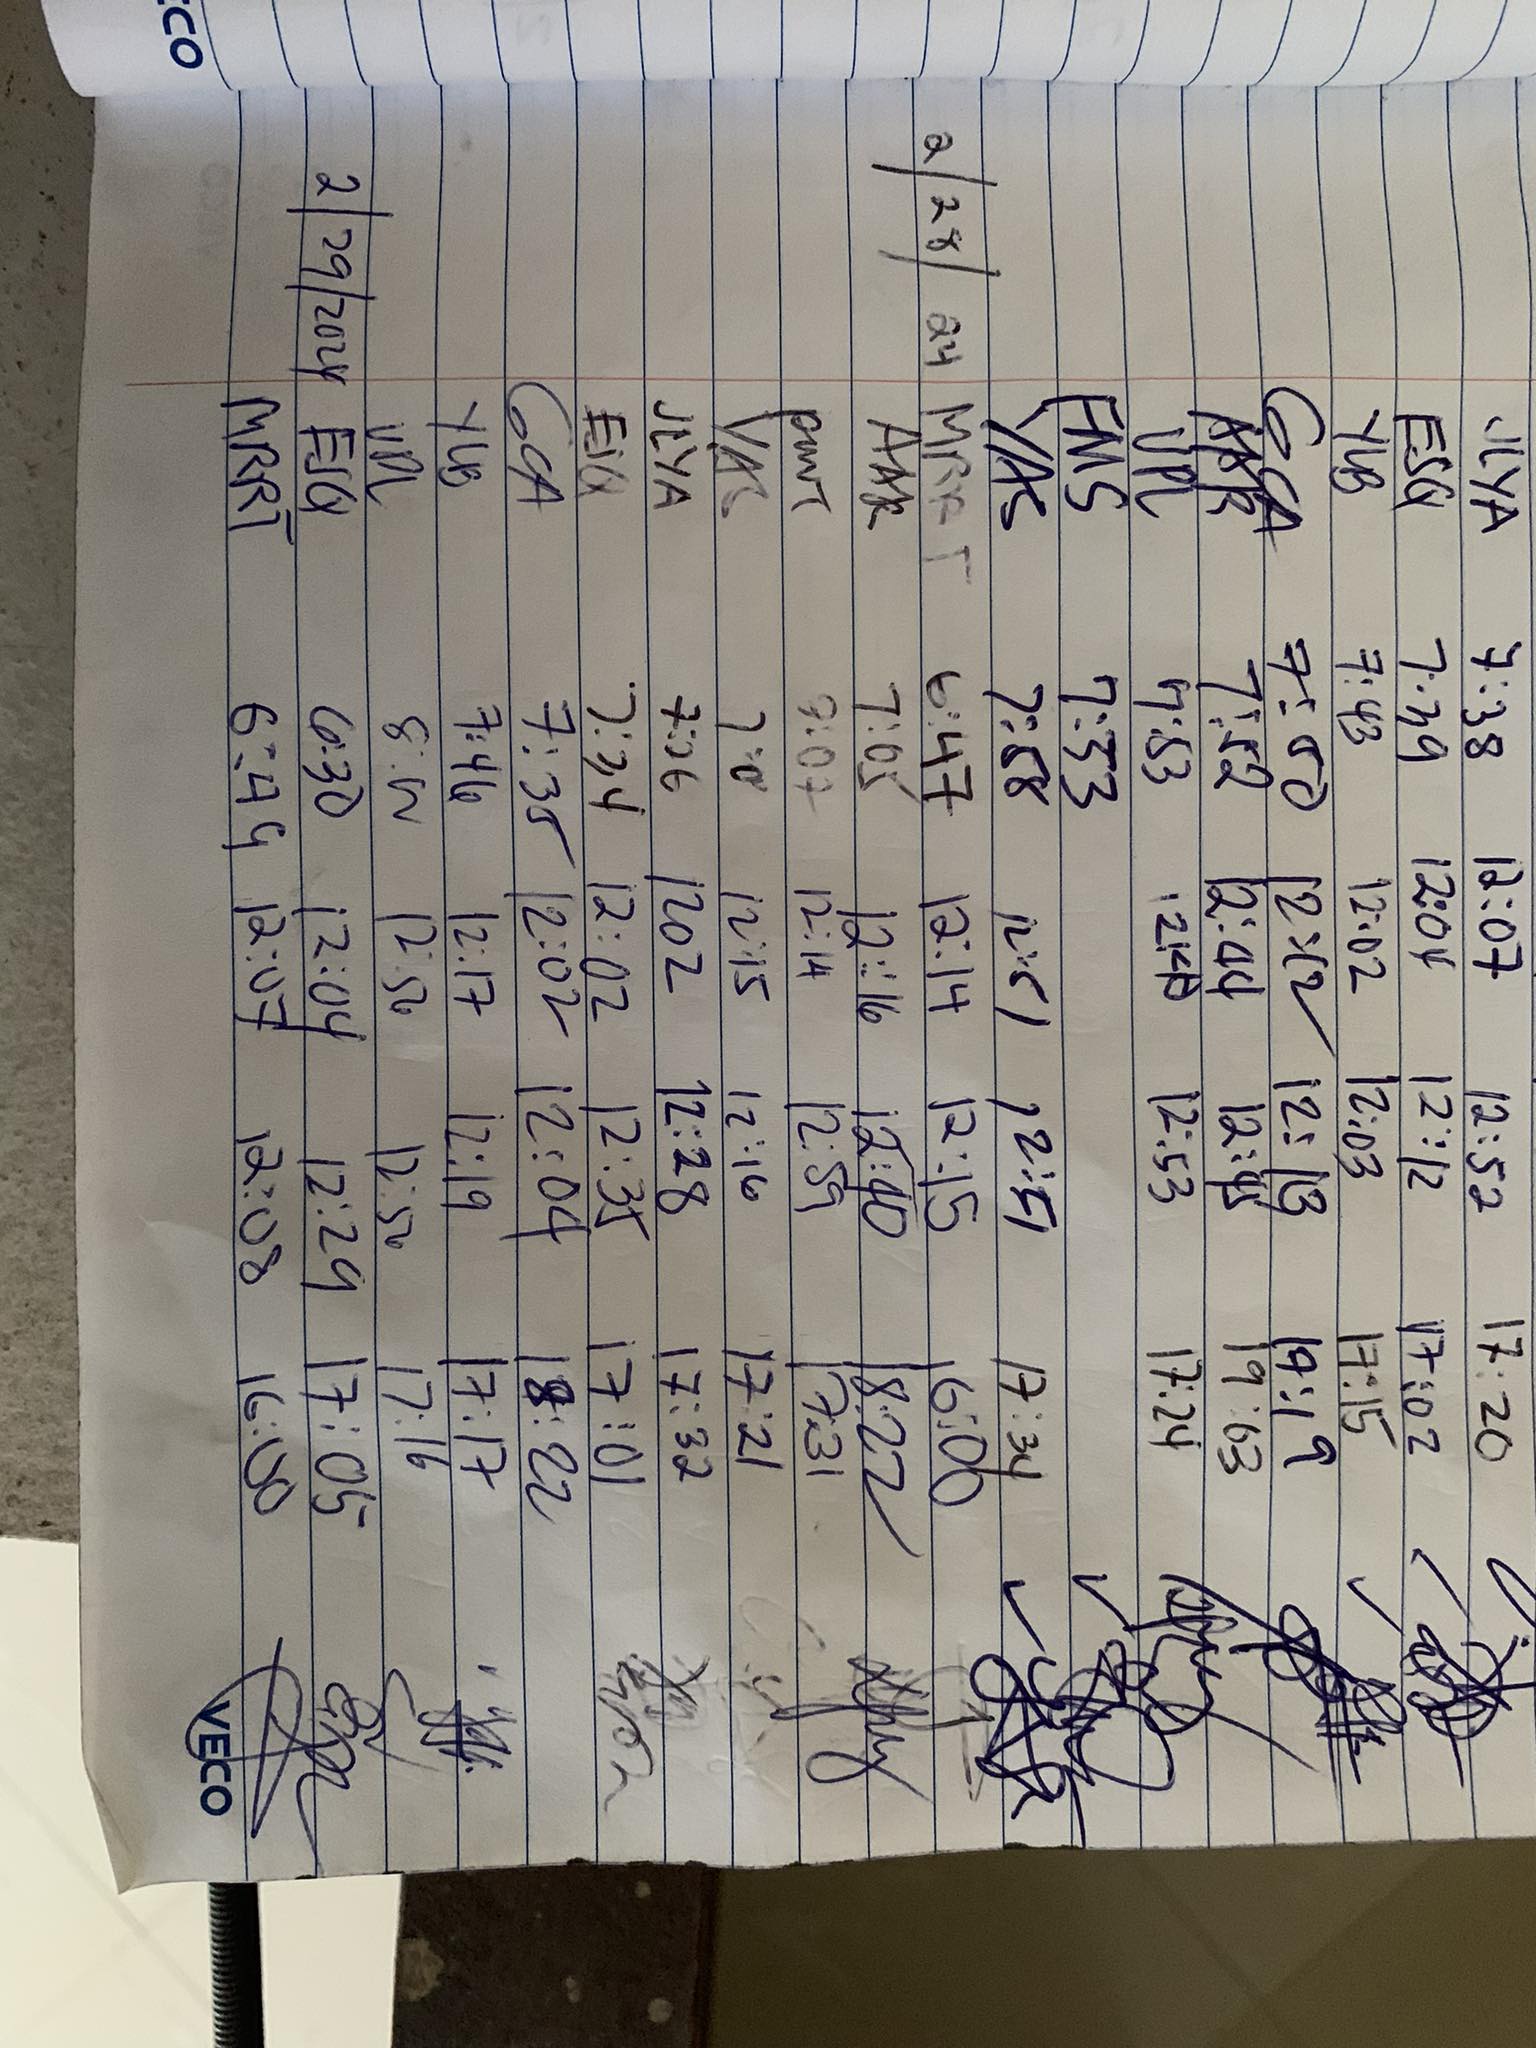 VECO
JLYA 7:38 12:07 12:52 17:20
ESG 7:39 12:04 12:12 17:02
YLB 7:43 12:02 12:03 17:15
GCA 7:50 12:42 12:13 19:19
AAR 7:52 12:44 12:45 19:
VDL 7:53 12:53 17:24
FMS 7:53
VAS 7:58 12:51 12:51 17:34
2/28/24 MRRT 6:47 12:14 12:15 16:00
AAR 7:05 12:16 12:40 18:22
7:07 12:14 12:59 17:31
VAS 12:15 12:16 17:21
JLYA 7:26 1202 12:28 17:32
7:34 12:02 12:35 17:01
GCA 7:35 12:02 12:04 18:22
YLB 7:46 12:17 12:19 17:17
VDL 12:50 12:50 17:16
2/29/2024 ESG 6:30 12:04 12:29 17:05
MRRT 6:49 12:07 12:08 16:00
VECO